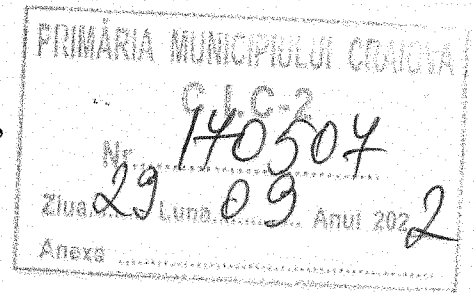 PRIMĂRIA MUNICIPIULUI CRAIOVA
C.I.C-2
Nr. 170507
Ziua 29 Luna 09 Anul 2022
Anexa